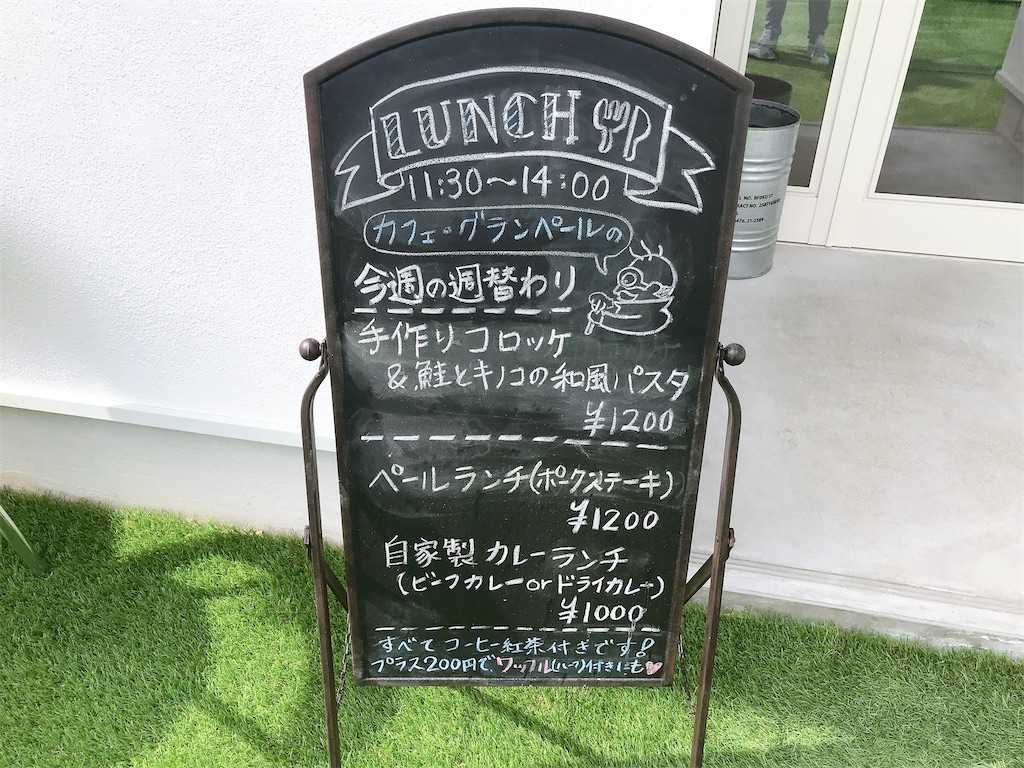 LUNCH
11:30〜14:00
カフェ・グランペールの
今週の週替わり
手作りコロッケ
&鮭とキノコの和風パスタ
¥1200
ペールランチ(ポークステーキ)
¥1200
自家製カレーランチ
(ビーフカレーorドライカレー)
¥1000
すべてコーヒー紅茶付きです!
プラス200円でワッフル(ハーフ)付きにも♥